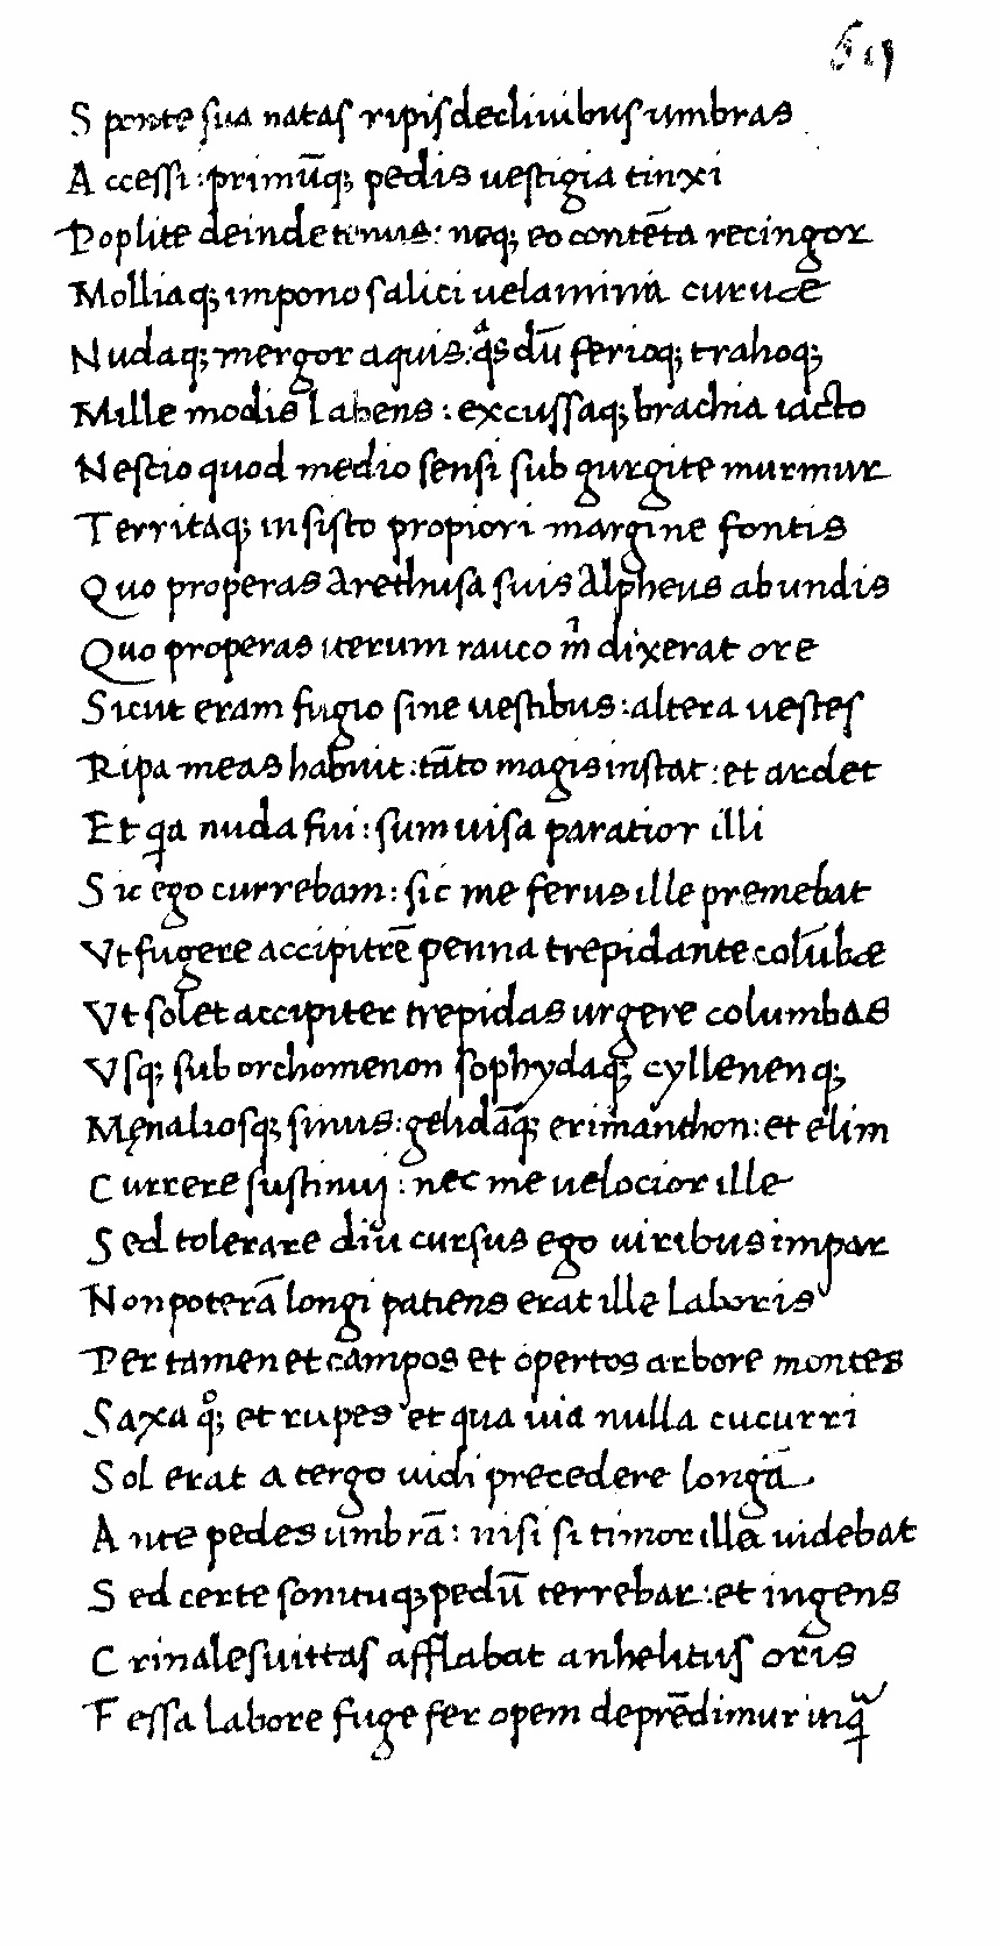 Sponte sua natas ripis decliuibus umbras
Accessi: primūq; pedis uestigia tinxi
Poplite deinde tenus: neq; eo contēta recingor
Molliaq; impono salici uelamina curuæ
Nudaq; mergor aquis: qᵃs dū ferioq; trahoq;
Mille modis labens: excussaq; brachia iacto
Nescio quod medio sensi sub gurgite murmur
Territaq; insisto propiori margine fontis
Quo properas Arethusa suis Alpheus ab undis
Quo properas iterum rauco mⁱ dixerat ore
Sicut eram fugio sine uestibus: altera uestes
Ripa meas habuit: tāto magis instat: et ardet
Et qa nuda fui: sum uisa paratior illi
Sic ego currebam: sic me ferus ille premebat
Vt fugere accipitrē penna trepidante colūbæ
Vt solet accipiter trepidas urgere columbas
Vsq; sub orchomenon sophydaq; cyllenenq;
Męnaliosq; sinus: gelidāq; erimanthon: et elim
Currere sustinuj: nec me uelocior ille
Sed tolerare diu cursus ego uiribus impar
Non poterā longi patiens erat ille laboris
Per tamen et campos et opertos arbore montes
Saxa q°; et rupes et qua uia nulla cucurri
Sol erat a tergo uidi precedere longā
Ante pedes umbrā: nisi si timor illa uidebat
Sed certe sonituq; pedū terrebar: et ingens
Crinales uittas afflabat anhelitus oris
Fessa labore fuge fer opem deprēdimur inqᵃ